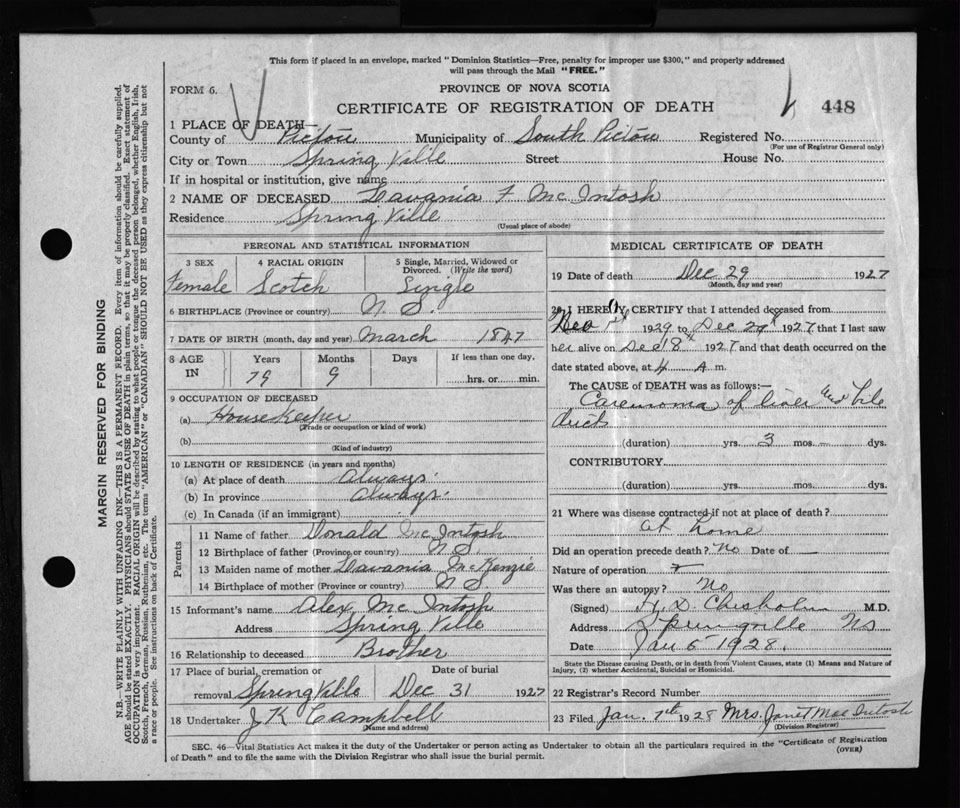 This form if placed in an envelope, marked "Dominion Statistics—Free, penalty for improper use $300," and properly addressed
will pass through the Mail "FREE."
FORM 6.
PROVINCE OF NOVA SCOTIA
CERTIFICATE OF REGISTRATION OF DEATH
448
1 PLACE OF DEATH—
County of Pictou Municipality of South Pictou Registered No.
(For use of Registrar General only)
City or Town Spring Ville Street House No.
If in hospital or institution, give name
2 NAME OF DECEASED Davania F Mc Intosh
Residence Spring Ville
(Usual place of abode)
PERSONAL AND STATISTICAL INFORMATION
3 SEX 4 RACIAL ORIGIN 5 Single, Married, Widowed or
Divorced. (Write the word)
Female Scotch Single
6 BIRTHPLACE (Province or country) N. S.
7 DATE OF BIRTH (month, day and year) March 1847
8 AGE IN Years Months Days If less than one day,
79 9 hrs. or min.
9 OCCUPATION OF DECEASED
(a) House Keeper
(Trade or occupation or kind of work)
(b)
(Kind of industry)
10 LENGTH OF RESIDENCE (in years and months)
(a) At place of death Always
(b) In province Always
(c) In Canada (if an immigrant)
Parents
11 Name of father Donald Mc Intosh
12 Birthplace of father (Province or country) N S
13 Maiden name of mother Davania McKenzie
14 Birthplace of mother (Province or country) N S
15 Informant's name Alex Mc Intosh
Address Spring Ville
16 Relationship to deceased Brother
17 Place of burial, cremation or Date of burial
removal Spring Ville Dec 31 1927
18 Undertaker J K Campbell
(Name and address)
MEDICAL CERTIFICATE OF DEATH
19 Date of death Dec 29 1927
(Month, day and year)
20 I HEREBY CERTIFY that I attended deceased from
1929 to Dec 29 1927 that I last saw
her alive on Dec 18th 1927 and that death occurred on the
date stated above, at 4 A m.
The CAUSE of DEATH was as follows:—
Carcinoma of liver and bile
ducts
(duration) yrs. 3 mos. — dys.
CONTRIBUTORY
(duration) yrs. mos. dys.
21 Where was disease contracted if not at place of death?
at home
Did an operation precede death? No Date of —
Nature of operation
Was there an autopsy? No
(Signed) H. D. Chisholm M.D.
Address Springville NS
Date Jan 5 1928.
State the Disease causing Death, or in death from Violent Causes, state (1) Means and Nature of
Injury, (2) whether Accidental, Suicidal or Homicidal.
22 Registrar's Record Number
23 Filed Jan. 7th 1928 Mrs. Janet MacIntosh
(Division Registrar)
SEC. 46—Vital Statistics Act makes it the duty of the Undertaker or person acting as Undertaker to obtain all the particulars required in the "Certificate of Registration
of Death" and to file the same with the Division Registrar who shall issue the burial permit.
(OVER)
MARGIN RESERVED FOR BINDING
N.B.—WRITE PLAINLY WITH UNFADING INK—THIS IS A PERMANENT RECORD. Every item of information should be carefully supplied.
AGE should be stated EXACTLY. PHYSICIANS should STATE CAUSE OF DEATH in plain terms, so that it may be properly classified. Exact statement of
OCCUPATION is very important. RACIAL ORIGIN will be described by stating to what people or tongue the deceased person belonged, whether English, Irish,
Scotch, French, German, Russian, Ruthenian, etc. The terms "AMERICAN" or "CANADIAN" SHOULD NOT BE USED as they express citizenship but not
a race or people. See instructions on back of Certificate.